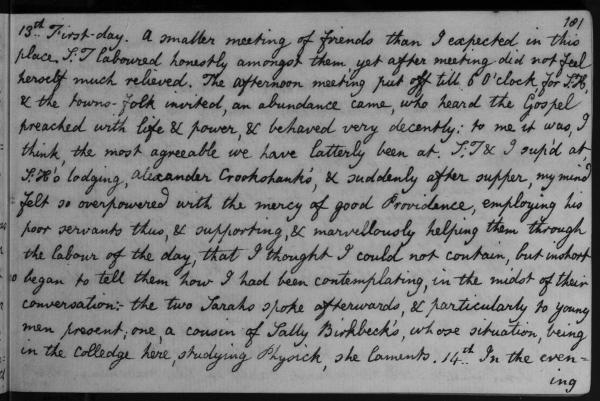 181
13th First-day. A smaller meeting of friends than I expected in this
place, S:T laboured honestly amongst them yet after meeting did not feel
herself much relieved. The afternoon meeting put off till 6 O'clock for S:H,
& the towns-folk invited, an abundance came, who heard the Gospel
preached with life & power, & behaved very decently: to me it was, I
think, the most agreeable we have latterly been at. S:T & I sup'd at
S:H's lodging, Alexander Crookshank's, & suddenly after supper, my mind
felt so overpowered with the mercy of good Providence, employing his
poor servants thus, & supporting, & marvellously helping them through
the labour of the day, that I thought I could not contain, but inshort
began to tell them how I had been contemplating, in the midst of their
conversation:- the two Sarahs spoke afterwards, & particularly to young
men present; one, a cousin of Sally Birkbeck's, whose situation, being
in the colledge here, studying Physick, she laments. 14th In the even=
ing